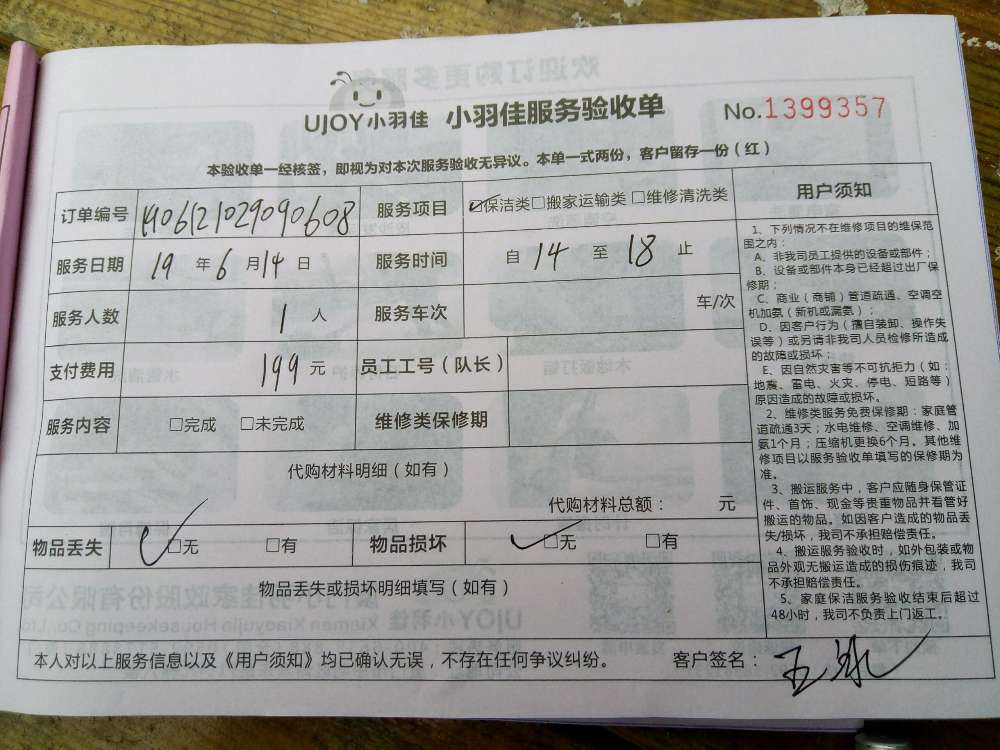 UJOY小羽佳 小羽佳服务验收单 No.1399357
本验收单一经核签，即视为对本次服务验收无异议。本单一式两份，客户留存一份（红）
订单编号 1906121029090608 服务项目 ☑保洁类□搬家运输类□维修清洗类
服务日期 19 年 6 月 14 日 服务时间 自 14 至 18 止
服务人数 1 人 服务车次 车/次
支付费用 199 元 员工工号（队长）
服务内容 □完成 □未完成 维修类保修期
代购材料明细（如有）
代购材料总额： 元
物品丢失 ☑无 □有 物品损坏 ☑无 □有
物品丢失或损坏明细填写（如有）
本人对以上服务信息以及《用户须知》均已确认无误，不存在任何争议纠纷。 客户签名：
用户须知
1、下列情况不在维修项目的维保范
围之内：
A、非我司员工提供的设备或部件；
B、设备或部件本身已经超过出厂保
修期；
C、商业（商铺）管道疏通、空调空
机加氨（新机或漏氨）；
D、因客户行为（擅自装卸、操作失
误等）或另请非我司人员检修所造成
的故障或损坏；
E、因自然灾害等不可抗拒力（如：
地震、雷电、火灾、停电、短路等）
原因造成的故障或损坏。
2、维修类服务免费保修期：家庭管
道疏通3天；水电维修、空调维修、加
氨1个月；压缩机更换6个月。其他维
修项目以服务验收单填写的保修期为
准。
3、搬运服务中，客户应随身保管证
件、首饰、现金等贵重物品并看管好
搬运的物品。如因客户造成的物品丢
失/损坏，我司不承担赔偿责任。
4、搬运服务验收时，如外包装或物
品外观无搬运造成的损伤痕迹，我司
不承担赔偿责任。
5、家庭保洁服务验收结束后超过
48小时，我司不负责上门返工。